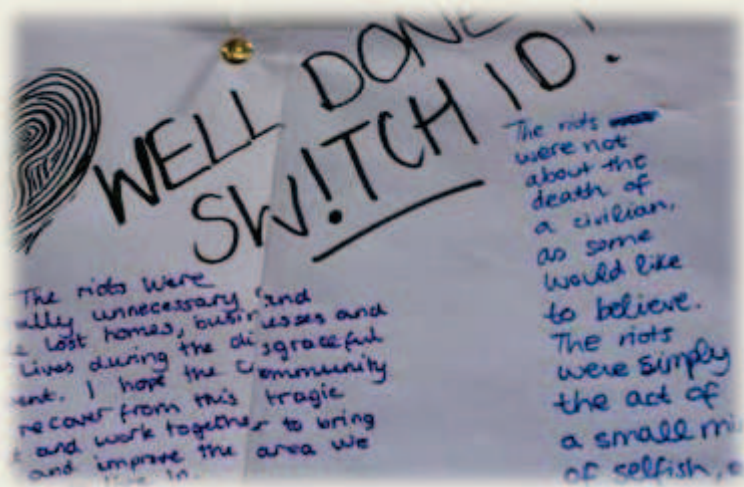 WELL DONE
SW!TCH ID!
The riots were
unnecessary and
lost homes, businesses and
Lives during the disgraceful
I hope the community
recover from this tragic
and work together to bring
and improve the area we
live in.
The riots
were not
about the
death of
a civilian,
as some
would like
to believe.
The riots
were simply
the act of
a small
of selfish,